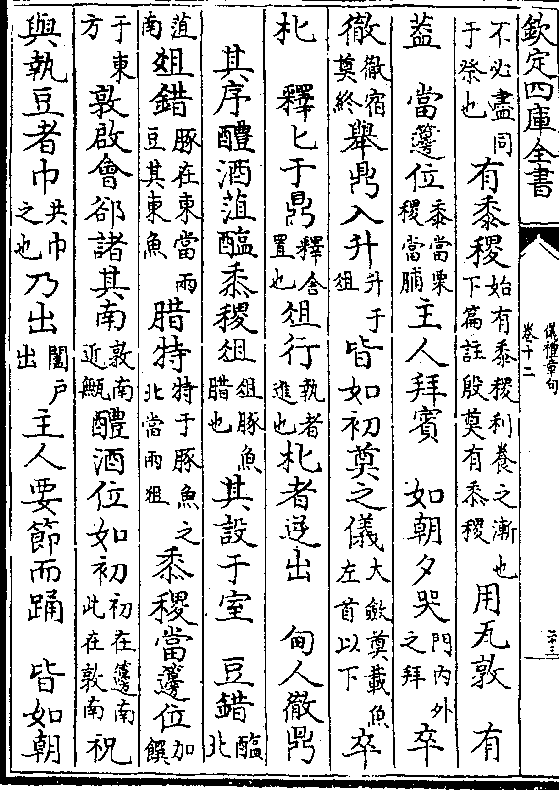 欽定四庫全書
儀禮章句
卷十二
不必盡同于祭也有黍稷始有黍稷利養之漸也下篇註殷奠有黍稷用瓦敦 有
蓋 當籩位黍當栗稷當脯主人拜賓 如朝夕哭門內外之拜卒
徹徹宿奠終舉鼎入升升于俎皆如初奠之儀大斂奠載魚左首以下卒
朼 釋匕于鼎釋舍置也俎行執者進也朼者逆出 甸人徹鼎
其序醴酒菹醢黍稷俎俎豚魚腊也其設于室 豆錯醢北
菹南俎錯豚在東當兩豆其東魚腊特特于豚魚之北當兩俎黍稷當籩位加饌
于東方敦啟會郤諸其南敦南近甒醴酒位如初初在籩南此在敦南祝
與執豆者巾共巾之也乃出闔戶出主人要節而踊 皆如朝